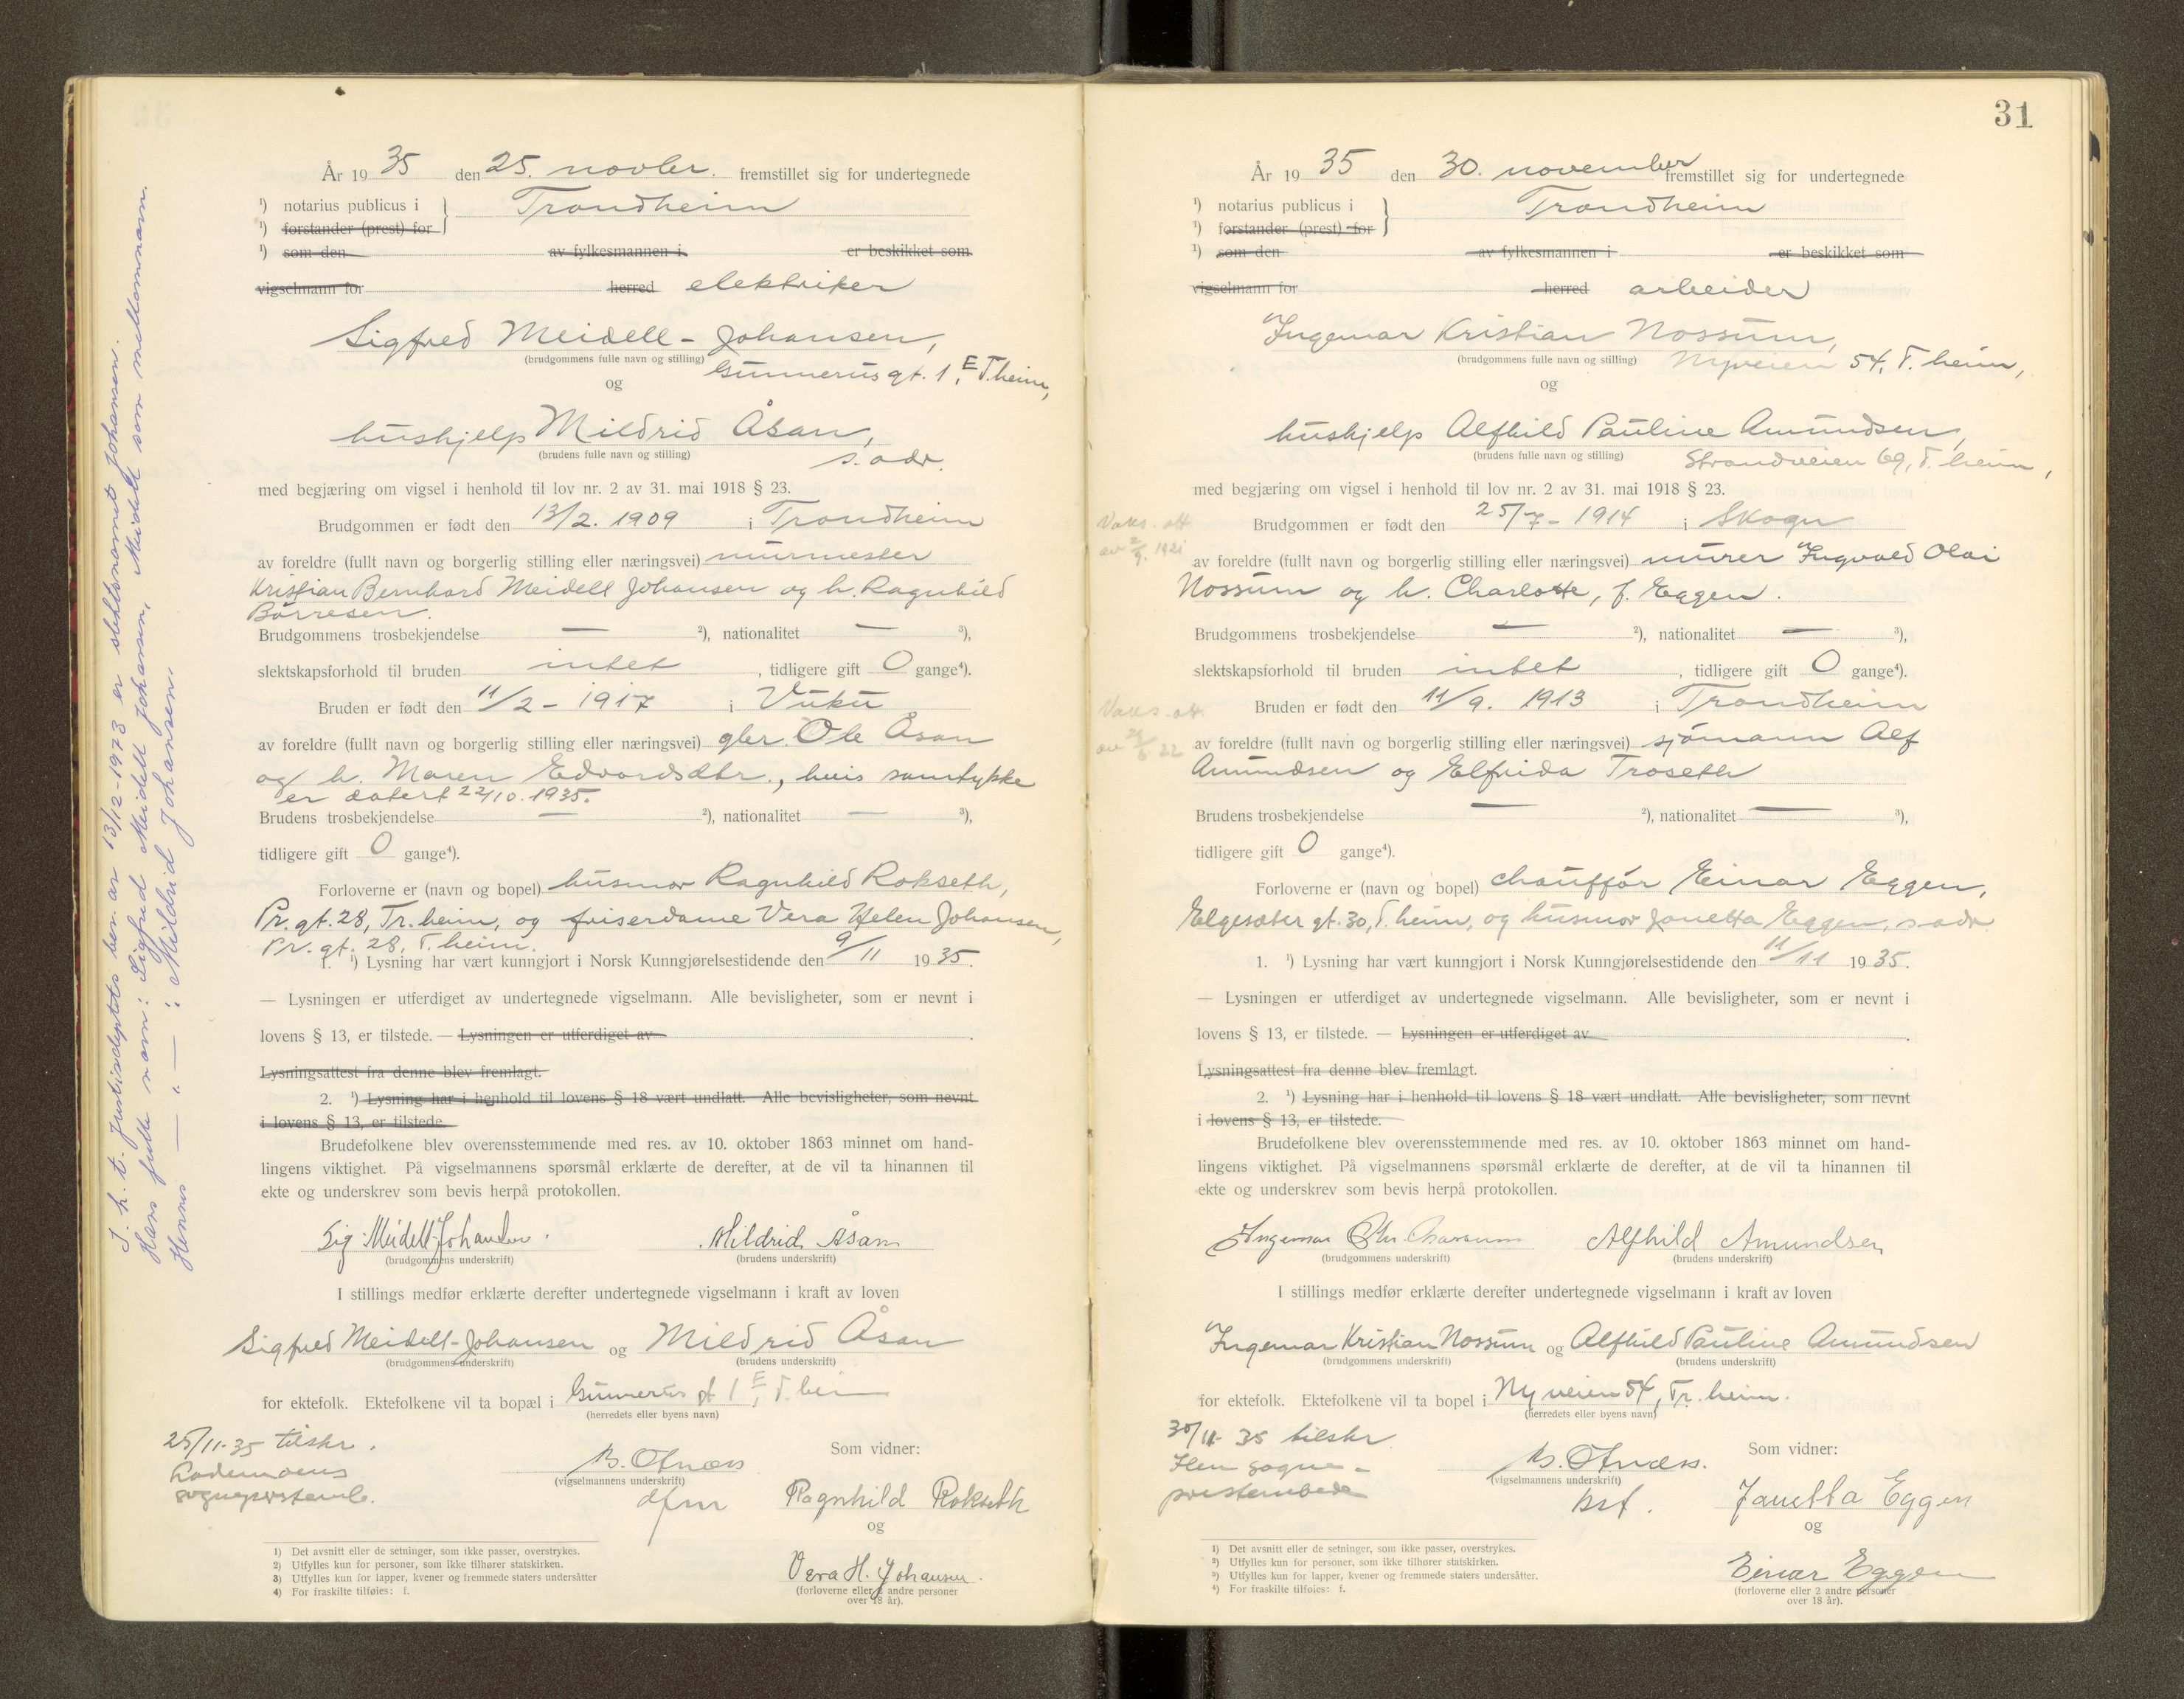 År 1935 den 25. novbr. fremstillet sig for undertegnede
¹) notarius publicus i
Trondheim
¹) forstander (prest) for
¹) som den av fylkesmannen i er beskikket som
vigselmann for herred elektriker
Sigfred Meidell-Johansen,
(brudgommens fulle navn og stilling) Gunnerus gt. 1 E, T.heim,
og
hushjelp Mildrid Åsan,
(brudens fulle navn og stilling) s. adr.
med begjæring om vigsel i henhold til lov nr. 2 av 31. mai 1918 § 23.
Brudgommen er født den 13/2. 1909 i Trondheim
av foreldre (fullt navn og borgerlig stilling eller næringsvei) murmester
Kristian Bernhard Meidell Johansen og h. Ragnhild
Börresen.
Brudgommens trosbekjendelse — ²), nationalitet — ³),
slektskapsforhold til bruden intet, tidligere gift 0 gange⁴).
Bruden er født den 11/2 - 1917 i Vuku
av foreldre (fullt navn og borgerlig stilling eller næringsvei) gbr. Ole Åsan
og h. Maren Edvardsdtr., hvis samtykke
er datert 22/10. 1935.
Brudens trosbekjendelse — ²), nationalitet — ³),
tidligere gift 0 gange⁴).
Forloverne er (navn og bopel) husmor Ragnhild Rokseth,
Pr. gt. 28, Tr.heim, og friserdame Vera Helen Johansen,
Pr. gt. 28, T.heim.
1. ¹) Lysning har vært kunngjort i Norsk Kunngjørelsestidende den 9/11 1935.
— Lysningen er utferdiget av undertegnede vigselmann. Alle bevisligheter, som er nevnt i
lovens § 13, er tilstede. — Lysningen er utferdiget av
Lysningsattest fra denne blev fremlagt.
2. ¹) Lysning har i henhold til lovens § 18 vært undlatt. Alle bevisligheter, som nevnt
i lovens § 13, er tilstede.
Brudefolkene blev overensstemmende med res. av 10. oktober 1863 minnet om hand-
lingens viktighet. På vigselmannens spørsmål erklærte de derefter, at de vil ta hinannen til
ekte og underskrev som bevis herpå protokollen.
Sig Meidell Johansen. Mildrid Åsan
(brudgommens underskrift) (brudens underskrift)
I stillings medfør erklærte derefter undertegnede vigselmann i kraft av loven
Sigfred Meidell-Johansen og Mildrid Åsan
(brudgommens underskrift) (brudens underskrift)
for ektefolk. Ektefolkene vil ta bopæl i Gunnerus gt 1 E, T.heim
(herredets eller byens navn)
25/11-35 tilskr.
Lademoens
sogneprestemb.
Som vidner:
(vigselmannens underskrift)
Ragnhild Rokseth
og
Vera H. Johansen.
(forloverne eller 2 andre personer
over 18 år).
1) Det avsnitt eller de setninger, som ikke passer, overstrykes.
2) Utfylles kun for personer, som ikke tilhører statskirken.
3) Utfylles kun for lapper, kvener og fremmede staters undersåtter
4) For fraskilte tilføies: f.
I. h. t. Justisdeptets bev. av 13/12-1973 er slektsnavnet Johansen.
Hans fulle navn: Sigfred Meidell Johansen, Meidell som mellomnavn.
Hennes — " — : Mildrid Johansen.
31
År 1935 den 30. november fremstillet sig for undertegnede
¹) notarius publicus i
Trondheim
¹) forstander (prest) for
¹) som den av fylkesmannen i er beskikket som
vigselmann for herred arbeider
Ingemar Kristian Nossum,
(brudgommens fulle navn og stilling) Nyveien 54, T.heim,
og
hushjelp Alfhild Pauline Amundsen,
(brudens fulle navn og stilling) Strandveien 69, T.heim,
med begjæring om vigsel i henhold til lov nr. 2 av 31. mai 1918 § 23.
Vaks. att.
av 2/9. 1921
Brudgommen er født den 25/7 - 1914 i Skogn
av foreldre (fullt navn og borgerlig stilling eller næringsvei) murer Ingvald Olai
Nossum og h. Charlotte, f. Eggen.
Brudgommens trosbekjendelse — ²), nationalitet — ³),
slektskapsforhold til bruden intet, tidligere gift 0 gange⁴).
Vaks. att.
Bruden er født den 11/9. 1913 i Trondheim
av foreldre (fullt navn og borgerlig stilling eller næringsvei) sjömann Alf
Amundsen og Elfrida Troseth
Brudens trosbekjendelse — ²), nationalitet — ³),
tidligere gift 0 gange⁴).
Forloverne er (navn og bopel) chaufför Einar Eggen,
Elgesæter gt. 30, T.heim, og husmor Janetta Eggen, s. adr.
1. ¹) Lysning har vært kunngjort i Norsk Kunngjørelsestidende den 11/11 1935.
— Lysningen er utferdiget av undertegnede vigselmann. Alle bevisligheter, som er nevnt i
lovens § 13, er tilstede. — Lysningen er utferdiget av
Lysningsattest fra denne blev fremlagt.
2. ¹) Lysning har i henhold til lovens § 18 vært undlatt. Alle bevisligheter, som nevnt
i lovens § 13, er tilstede.
Brudefolkene blev overensstemmende med res. av 10. oktober 1863 minnet om hand-
lingens viktighet. På vigselmannens spørsmål erklærte de derefter, at de vil ta hinannen til
ekte og underskrev som bevis herpå protokollen.
Ingemar Chr. Nossum Alfhild Amundsen
(brudgommens underskrift) (brudens underskrift)
I stillings medfør erklærte derefter undertegnede vigselmann i kraft av loven
Ingemar Kristian Nossum og Alfhild Pauline Amundsen
(brudgommens underskrift) (brudens underskrift)
for ektefolk. Ektefolkene vil ta bopel i Nyveien 54, Tr.heim.
(herredets eller byens navn)
30/11-35 tilskr.
Ilen sogne-
prestembede
Som vidner:
(vigselmannens underskrift)
Janetta Eggen
og
Einar Eggen
(forloverne eller 2 andre personer
over 18 år).
¹) Det avsnitt eller de setninger, som ikke passer, overstrykes.
²) Utfylles kun for personer, som ikke tilhører statskirken.
³) Utfylles kun for lapper, kvener og fremmede staters undersåtter.
⁴) For fraskilte tilføies: f.